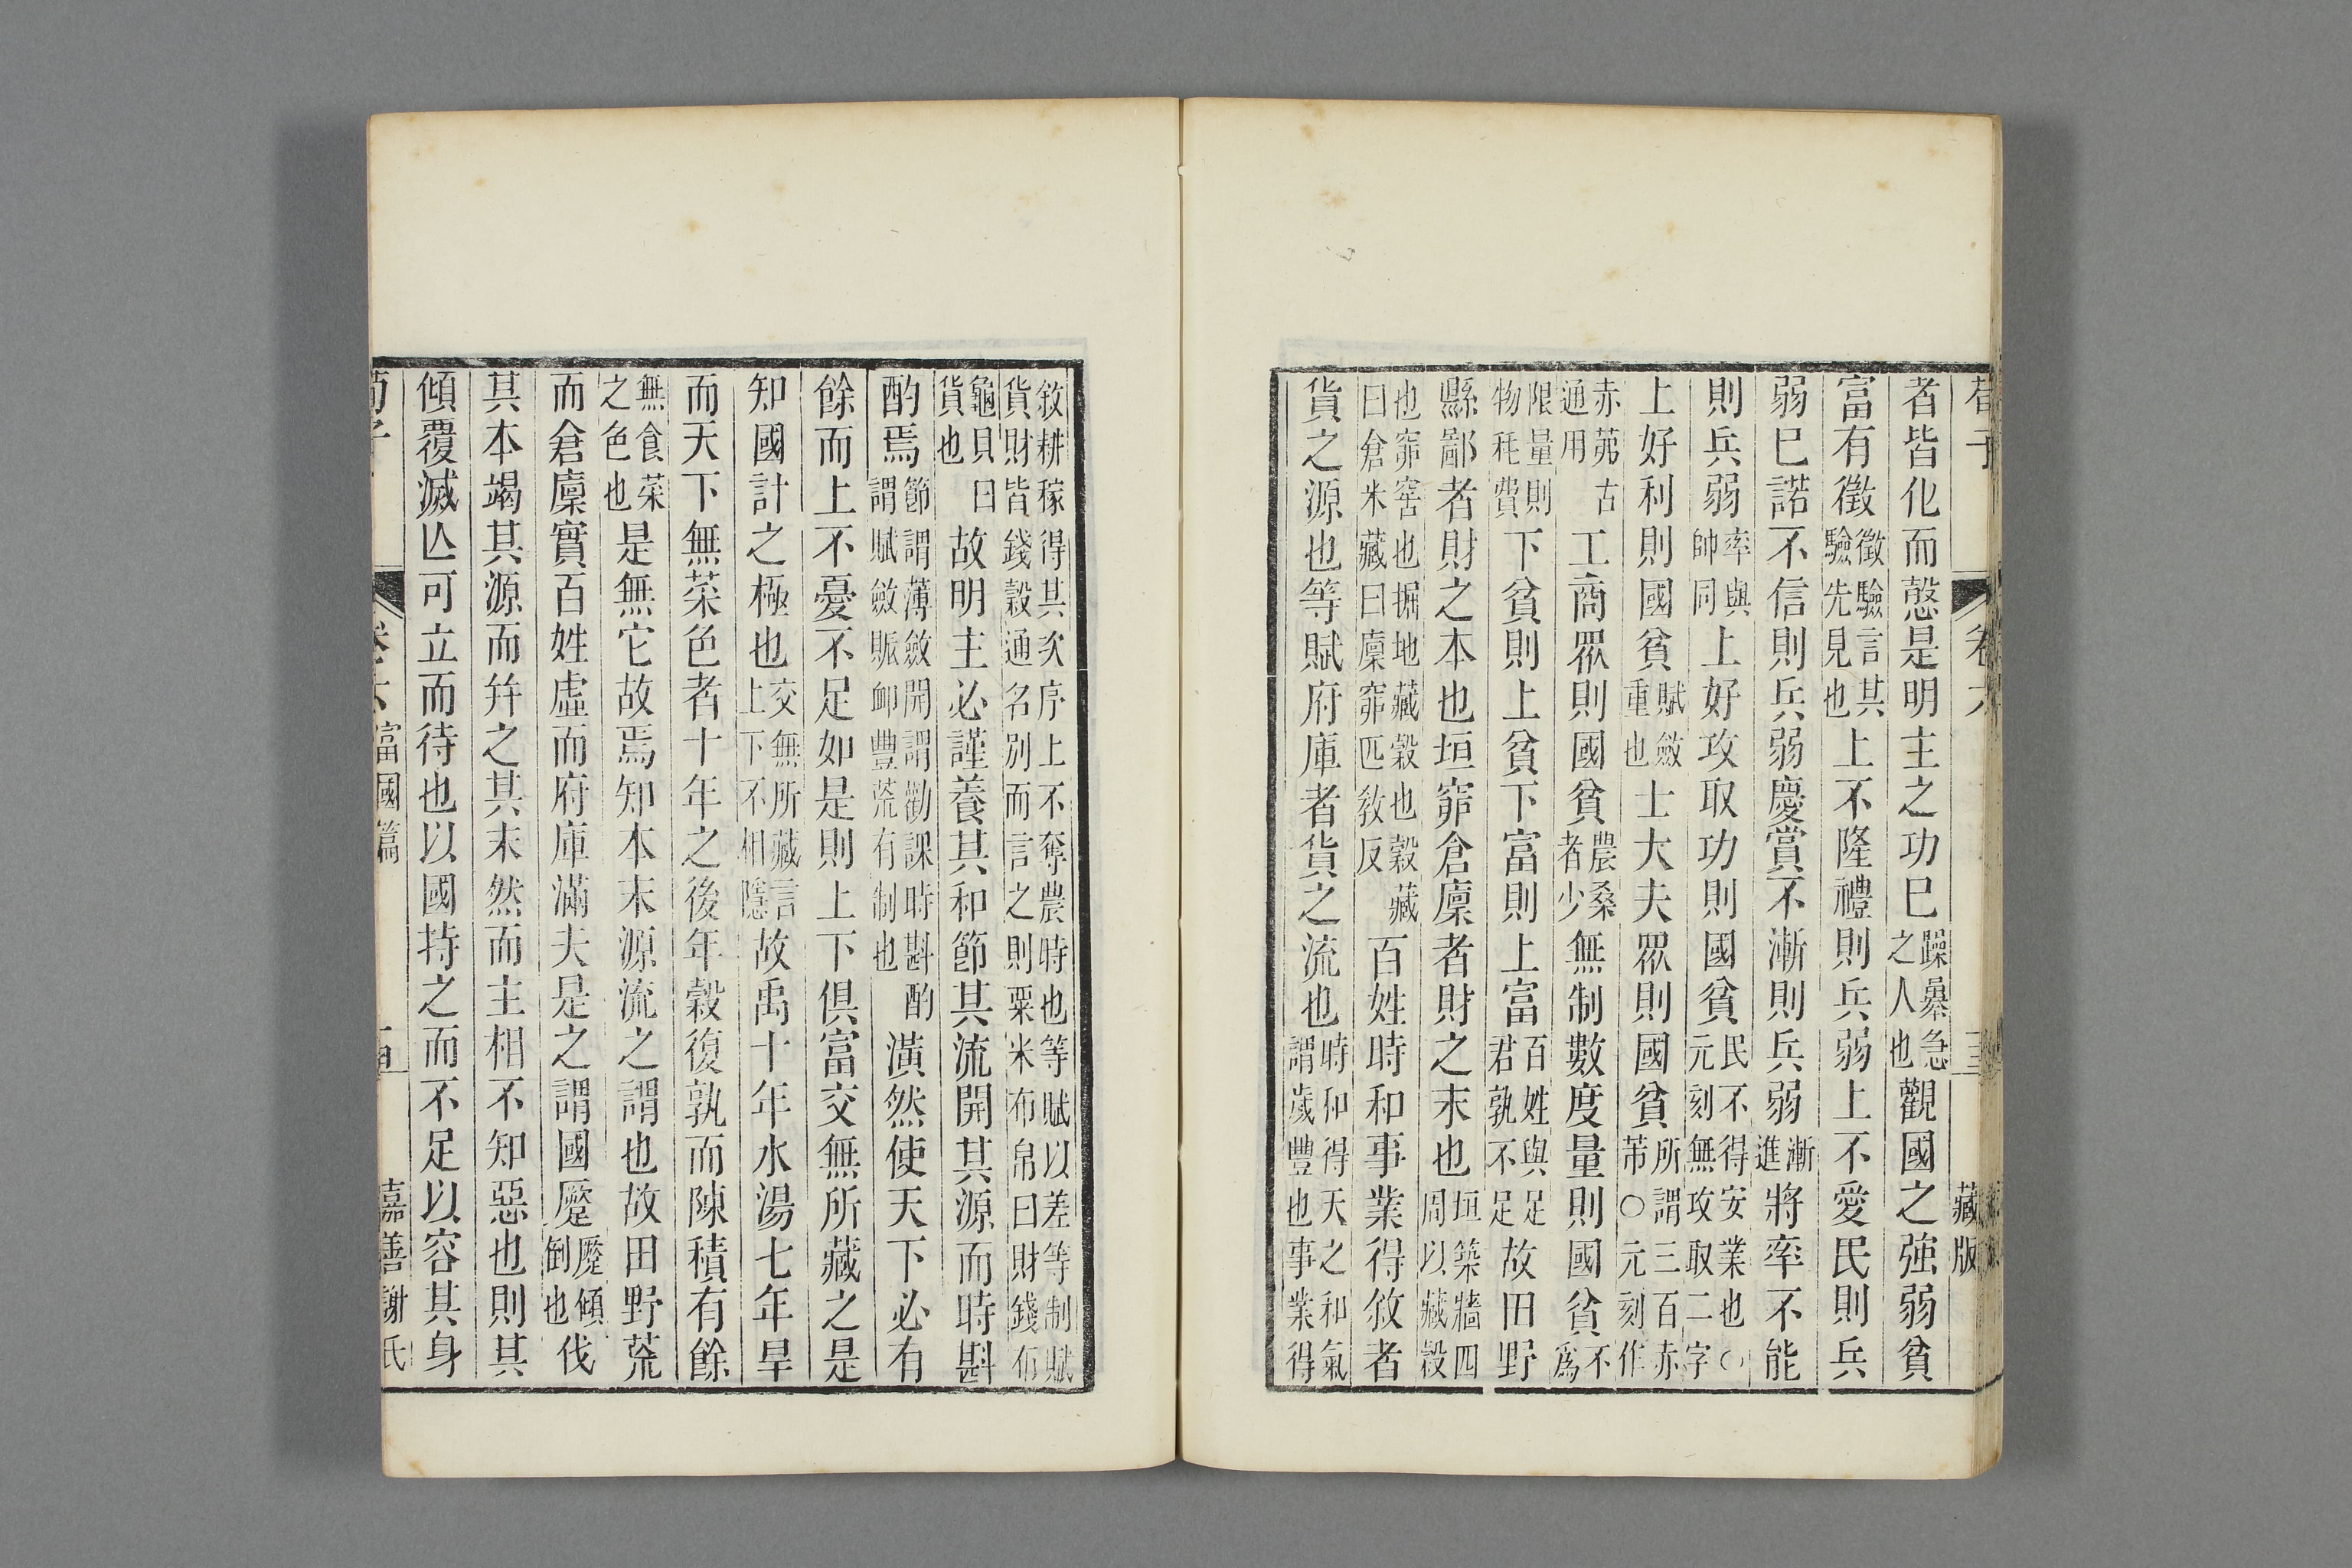 荀子 卷六 十三 藏版
者皆化而愨是明主之功已躁暴急之人也觀國之強弱貧
富有徵徵驗言其驗先見也上不隆禮則兵弱上不愛民則兵
弱已諾不信則兵弱慶賞不漸則兵弱漸進將率不能
則兵弱率與帥同上好攻取功則國貧民不得安業也○元刻無攻取二字
上好利則國貧賦斂重也士大夫眾則國貧所謂三百赤芾○元刻作
赤茀古通用工商眾則國貧農桑者少無制數度量則國貧不爲
限量則物秏費下貧則上貧下富則上富百姓與足君孰不足故田野
縣鄙者財之本也垣窌倉廩者財之末也垣築牆四周以藏穀
也窌窖也掘地藏穀也穀藏曰倉米藏曰廩窌匹敎反百姓時和事業得敘者
貨之源也等賦府庫者貨之流也時和得天之和氣謂歲豐也事業得
敘耕稼得其次序上不奪農時也等賦以差等制賦貨財皆錢穀通名別而言之則粟米布帛曰財錢布
龜貝曰貨也故明主必謹養其和節其流開其源而時斟
酌焉節謂薄斂開謂勸課時斟酌謂賦斂賑卹豐荒有制也潢然使天下必有
餘而上不憂不足如是則上下俱富交無所藏之是
知國計之極也交無所藏言上下不相隱故禹十年水湯七年旱
而天下無菜色者十年之後年穀復孰而陳積有餘
無食菜之色也是無它故焉知本末源流之謂也故田野荒
而倉廩實百姓虛而府庫滿夫是之謂國蹷蹷傾倒也伐
其本竭其源而幷之其末然而主相不知惡也則其
傾覆滅亾可立而待也以國持之而不足以容其身
荀子 卷六 富國篇 嘉善謝氏